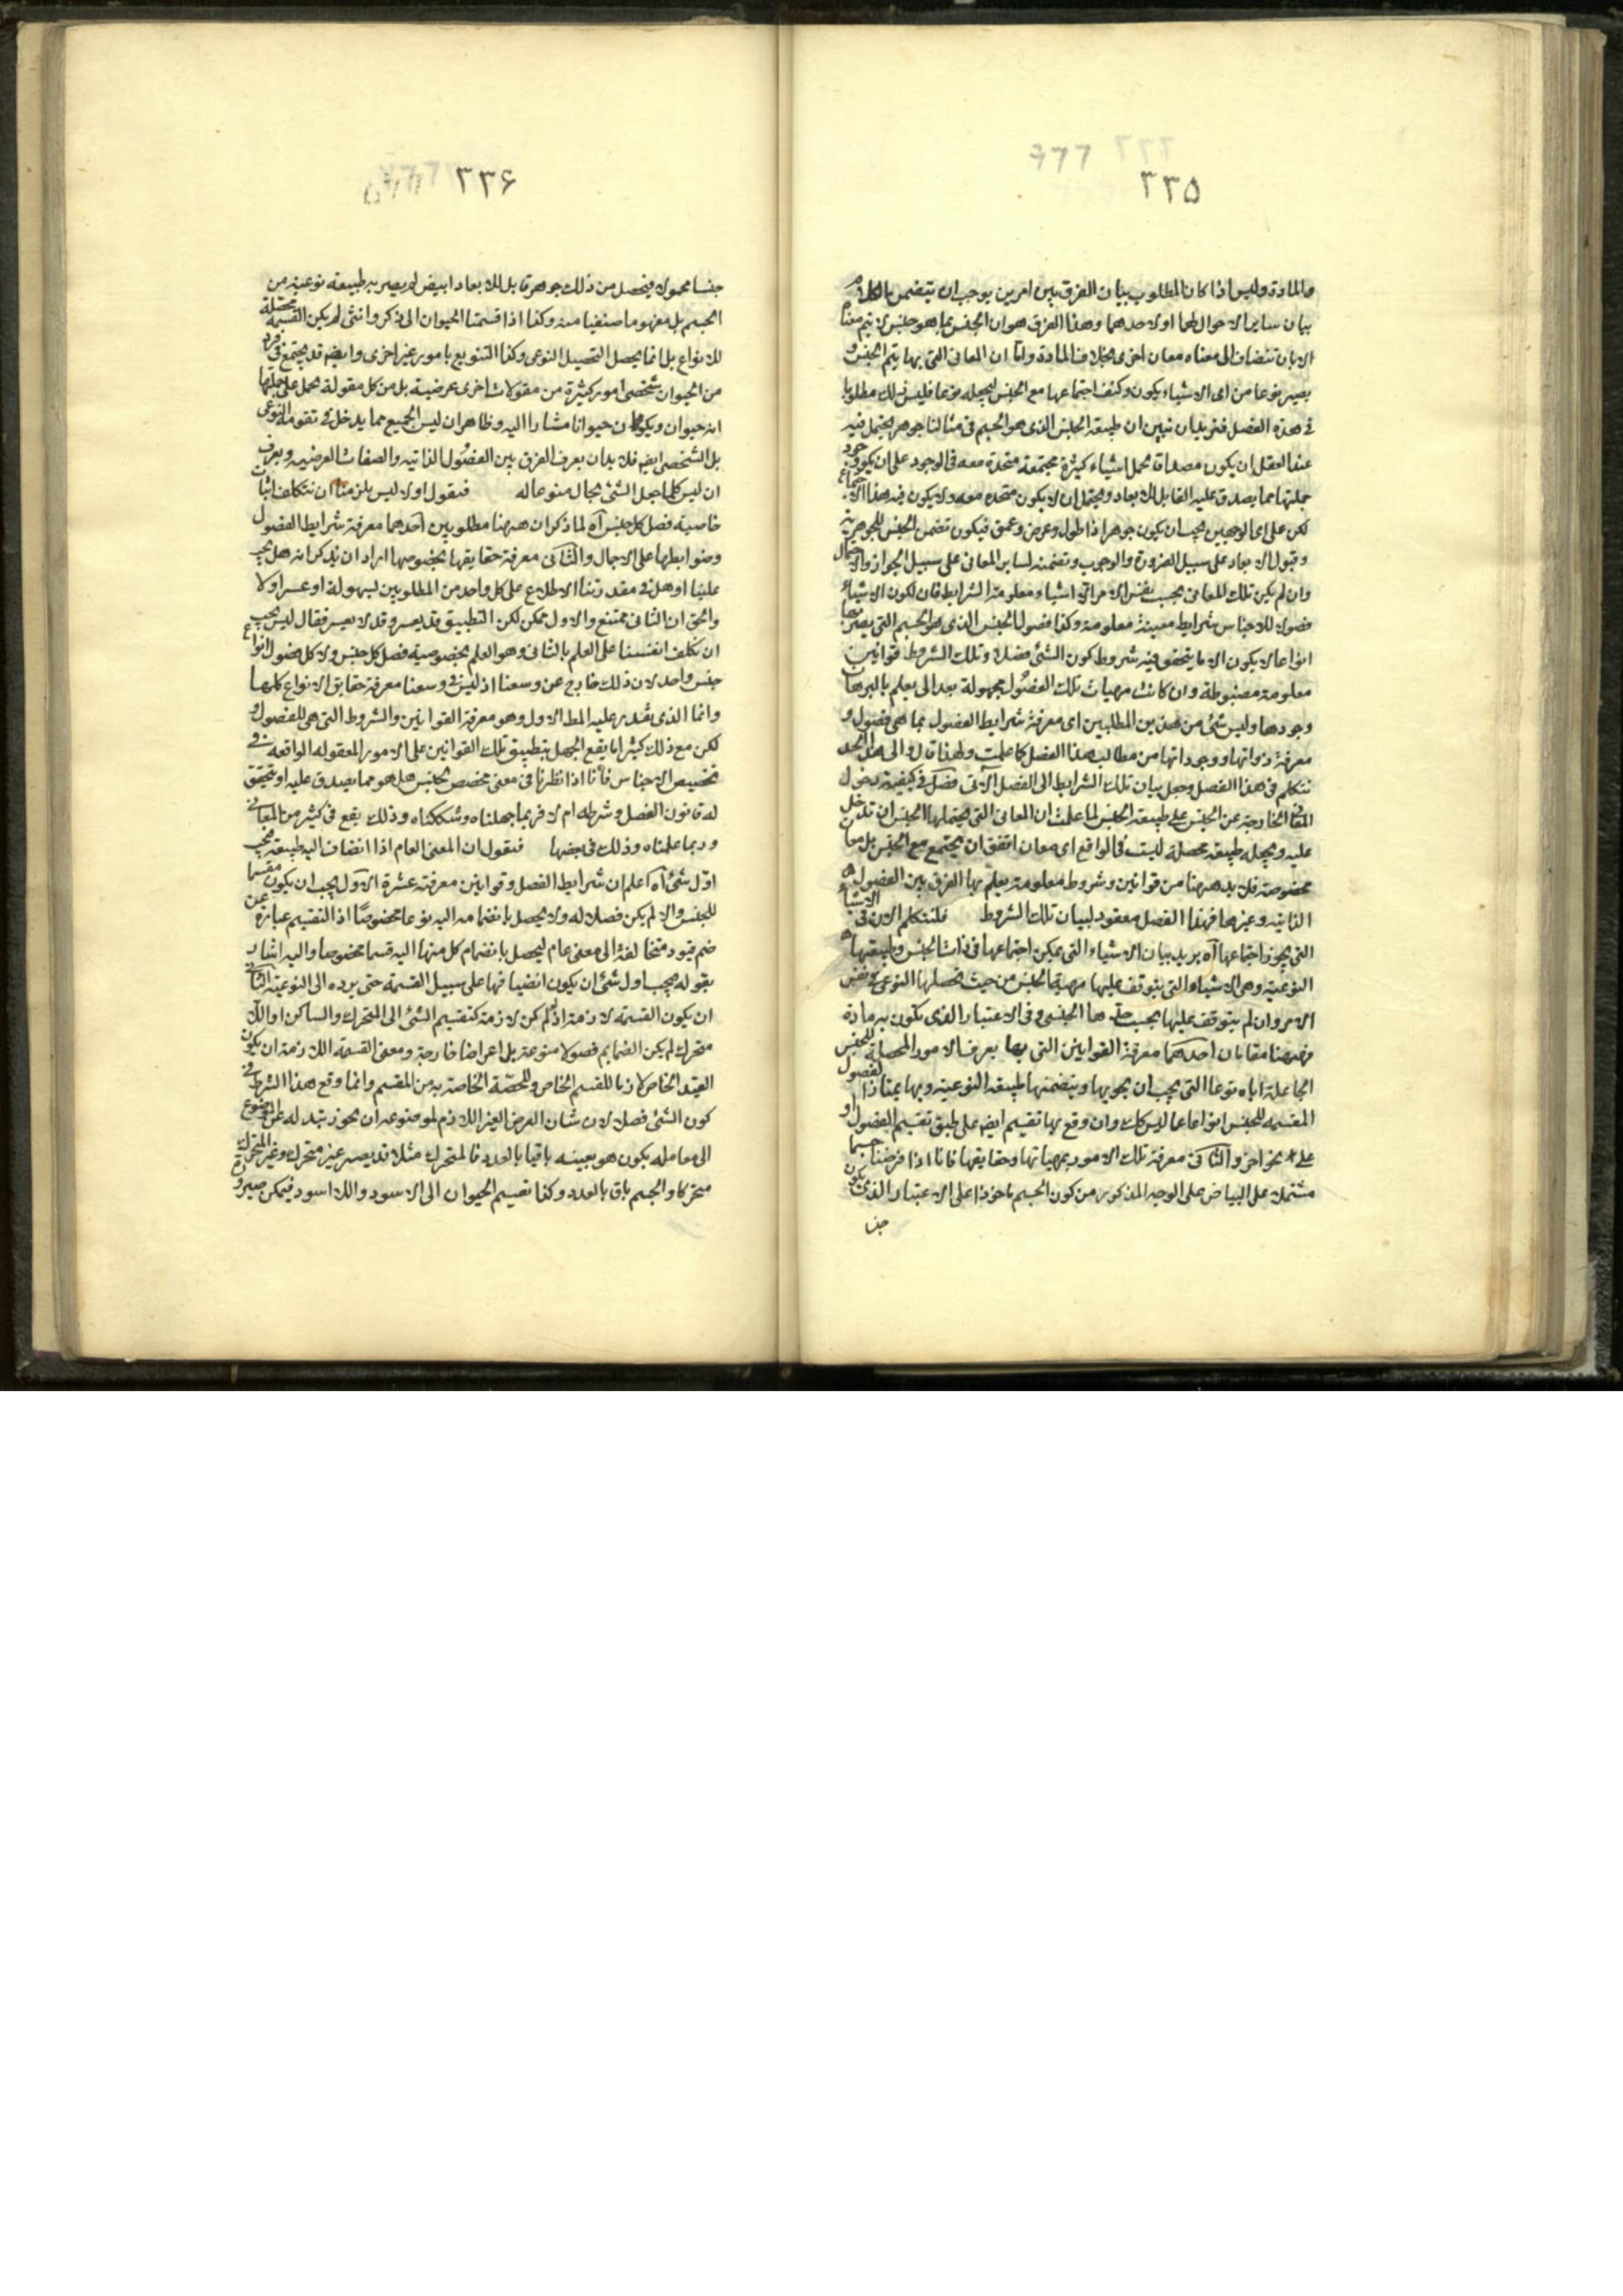 ٣٣٥
والمادة وليس اذا كان المطلوب بيان الفرق بين امرين يوجب ان يتضمن الكلام
بيان ساير الاحوال لهما او لاحدهما وهذا الفرق هو ان الجنس بما هو جنس لا يتم معناه
الا بان تنضاف الى معناه معان اخرى بخلاف المادة واما ان المعانى التى بها يتم الجنس و
يصير نوعا من اى الاشياء يكون وكيف اجتماعها مع الجنس ليجعله نوعا فليس ذلك مطلوبا
فى هذه الفصل فنريد ان نبين ان طبيعة الجنس الذى هو الجسم فى مثالنا جوهر يحتمل فيه
عند العقل ان يكون مصداقا لحمل اشياء كثيرة مجتمعة متحدة معه فى الوجود على ان يكون وجود
جملتها مما يصدق عليه القابل للابعاد ويحتمل ان لا يكون متحدة معه ولا يكون فيه هذا الاجتماع
لكن على اى الوجهين يجب ان يكون جوهرا ذا طول وعرض وعمق فيكون تضمن الجنس للجوهرية
وقبول الابعاد على سبيل الضرورة والوجوب وتضمنه لساير المعانى على سبيل الجواز والاحتمال
وان لم يكن تلك المعانى بحسب نفس الامر اى اشياء معلومة الشرايط فان لكون الاشياء
فصولا للاجناس شرايط معينة معلومة وكذا فصول الجنس الذى هو الجسم التى يصير بها
انواعا لا يكون الا ما يتحقق فيه شروط كون الشئ فصلا وتلك الشروط قوانين
معلومة مضبوطة وان كانت مهيات تلك الفصول مجهولة بعد الى ان يعلم بالبرهان
وجودها وليس شئ من هذين المطلبين اى معرفة شرايط الفصول بما هى فصول و
معرفة ذواتها ووجوداتها من مطالب هذا الفصل كما علمت ولهذا قال والى هذا الحد
نتكلم فى هذا الفصل وجعل بيان تلك الشرايط الى الفصل الآتى فصل فى كيفية دخول
المعانى الخارجة عن الجنس على طبيعة الجنس لما علمت ان المعانى التى يحتملها الجنس ان تدخل
عليه ويجعله طبيعة محصلة ليست فى الواقع اى معان اتفق ان يجتمع مع الجنس بل معان
مخصوصة فلا بد ههنا من قوانين وشروط معلومة يعلم بها الفرق بين الفصول
الذاتية وغيرها فهذا الفصل معقود لبيان تلك الشروط فلنتكلم الان فى الاشياء
التى يجوز اجتماعها آه يريد بيان الاشياء التى يمكن اجتماعها فى ذات الجنس وطبيعتها
النوعية وهى الاشياء التى يتوقف عليها مهية الجنس من حيث تحصلها النوعى فى نفس
الامر وان لم يتوقف عليها بحسب حدها الجنسى وفى الاعتبار الذى يكون به مادة
فههنا مقامان احدهما معرفة القوانين التى بها يعرف الامور المحصلة للجنس
الجاعلة اياه نوعا التى يجب ان يحويها ويتضمنها طبيعته النوعية وبها يمتاز الفصول
المقسمة للجنس انواعا عما ليس كك وان وقع بها تقسيم ايضا على طبق تقسيم الفصول او
على نحو آخر والثانى معرفة تلك الامور بمهياتها وحقايقها فانا اذا فرضنا جسما
مشتملا على البياض على الوجه المذكور من كون الجسم ماخوذا على الاعتبار الذى يكون
جنسا
٣٣۶
جنسا محمولا فيحصل من ذلك جوهر قابل للابعاد ابيض لم يصر به طبيعة نوعية من
الجسم بل مفهوما صنفيا منه وكذا اذا قسمنا الحيوان الى ذكر وانثى لم يكن القسمة محصلة
للانواع بل انما يحصل التحصيل النوعى وكذا التنويع بامور غير اخرى وايضا قد يجتمع فى فرد
من الحيوان شخصى امور كثيرة من مقولات اخرى عرضية بل من كل مقولة يحمل على جملتها
انه حيوان ويكون حيوانا مشارا اليه وظاهر ان ليس الجميع مما يدخل فى تقومه النوعى
بل الشخصى ايضا فلا بد ان يعرف الفرق بين الفصول الذاتية والصفات العرضية ويعرف
ان ليس كلما جعل الشئ بحال منوعا له فنقول اولا ليس يلزمنا ان نتكلف اثبات
خاصية فصل كل جنس آه لما ذكر ان ههنا مطلوبين احدهما معرفة شرايط الفصول
وضوابطها على الاجمال والثانى معرفة حقايقها بخصوصها اراد ان يذكر انه هل يجب
علينا او هل فى مقدرتنا الاطلاع على كل واحد من المطلوبين بسهولة او عسر او لا
والحق ان الثانى ممتنع والاول ممكن لكن التطبيق قد يعسر وقد لا يعسر فقال ليس يجب
ان نكلف انفسنا على العلم بالثانى وهو العلم بخصوصية فصل كل جنس ولا كل فصول انواع
جنس واحد لان ذلك خارج عن وسعنا اذ ليس فى وسعنا معرفة حقايق الانواع كلها
وانما الذى نقدر عليه المط الاول وهو معرفة القوانين والشروط التى هى للفصول و
لكن مع ذلك كثيرا ما يقع الجهل بتطبيق تلك القوانين على الامور المعقوله الواقعة فى
تخصيص الاجناس فانا اذا نظرنا فى معنى مخصص لجنس هل هو مما يصدق عليه او يتحقق
له قانون الفصل وشرطه ام لا فربما جهلناه وشككناه وذلك يقع فى كثير من المعانى
وربما علمناه وذلك فى بعضها فنقول ان المعنى العام اذا انضاف اليه طبيعة فيجب
اول شئ آه اعلم ان شرايط الفصل وقوانين معرفته عشرة الاول يجب ان يكون مقسما
للجنس والا لم يكن فصلا له ولا يحصل بانضمامه اليه نوعا مخصوصا اذ التقسيم عبارة عن
ضم قيود متخالفة الى معنى عام ليحصل بانضمام كل منها اليه قسما مخصوصا واليه اشار
بقوله فيجب اول شئ ان يكون انضيافها على سبيل القسمة حتى يرده الى النوعية الثانى
ان يكون القسمة لازمة اذ لو لم يكن لازمة كتقسيم الشئ الى المتحرك والساكن او اللا
متحرك لم يكن الضمايم فصولا منوعة بل اعراضا خارجة ومعنى القسمة اللازمة ان يكون
القيد الخاص لازما للقسم الخاص وللحصة الخاصة به من المقسم وانما وقع هذا الشرط فى
كون الشئ فصلا لان شان العرض الغير اللازم لموضوعه ان يجوز تبدله على الموضوع
الى مقابله يكون هو بعينه باقيا بالعدد فالمتحرك مثلا قد يصير غير متحرك وغير المتحرك
متحركا والجسم باق بالعدد وكذا تقسيم الحيوان الى الاسود واللااسود فيمكن صيرورة